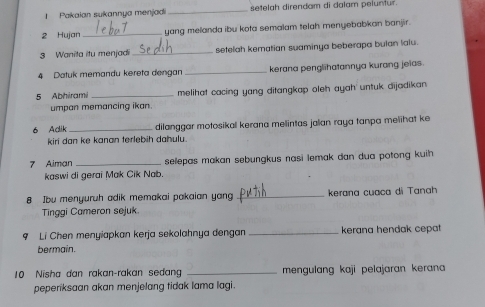 1 Pakaian sukannya menjadi ____________ setelah direndam di dalam peluntur.
2 Hujan lebat yang melanda ibu kota semalam telah menyebabkan banjir.
3 Wanita itu menjadi sedih setelah kematian suaminya beberapa bulan lalu.
4 Datuk memandu kereta dengan ____________ kerana penglihatannya kurang jelas.
5 Abhirami ____________ melihat cacing yang ditangkap oleh ayah untuk dijadikan
umpan memancing ikan.
6 Adik ____________ dilanggar motosikal kerana melintas jalan raya tanpa melihat ke
kiri dan ke kanan terlebih dahulu.
7 Aiman ____________ selepas makan sebungkus nasi lemak dan dua potong kuih
kaswi di gerai Mak Cik Nab.
8 Ibu menyuruh adik memakai pakaian yang putih kerana cuaca di Tanah
Tinggi Cameron sejuk.
9 Li Chen menyiapkan kerja sekolahnya dengan ____________ kerana hendak cepat
bermain.
10 Nisha dan rakan-rakan sedang ____________ mengulang kaji pelajaran kerana
peperiksaan akan menjelang tidak lama lagi.